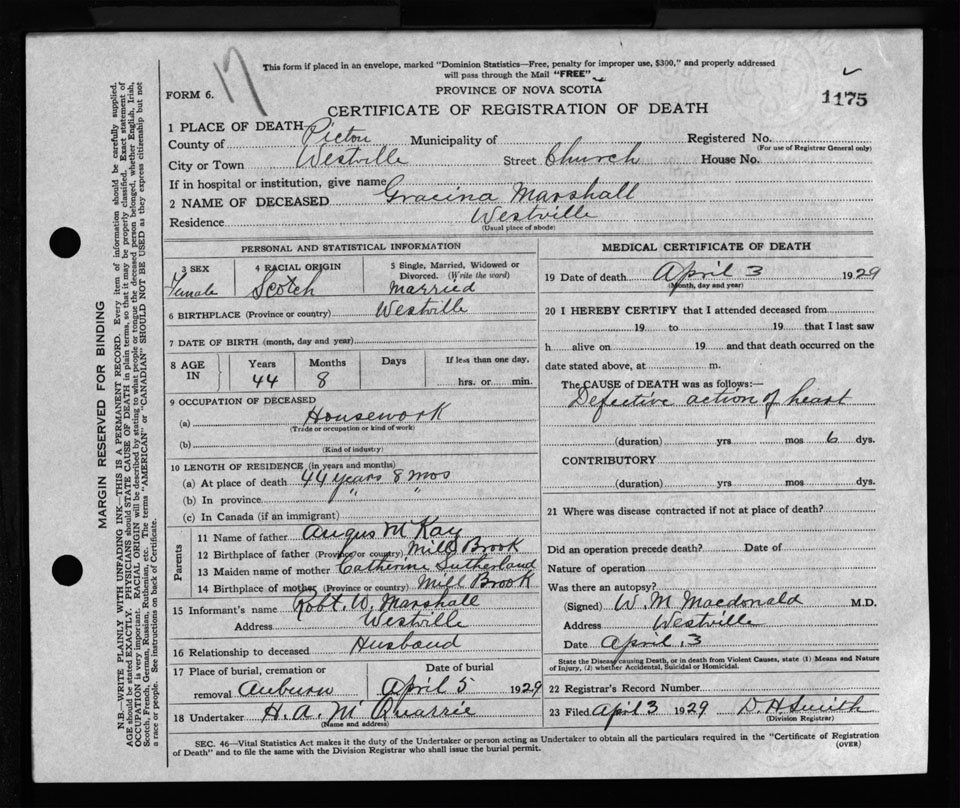 17
This form if placed in an envelope, marked "Dominion Statistics—Free, penalty for improper use, $300," and properly addressed
will pass through the Mail "FREE"
FORM 6.
PROVINCE OF NOVA SCOTIA
1175
CERTIFICATE OF REGISTRATION OF DEATH
1 PLACE OF DEATH
County of Pictou Municipality of Registered No.
(For use of Registrar General only)
City or Town Westville Street Church House No.
If in hospital or institution, give name
2 NAME OF DECEASED Gracina Marshall
Residence Westville
(Usual place of abode)
PERSONAL AND STATISTICAL INFORMATION
3 SEX 4 RACIAL ORIGIN 5 Single, Married, Widowed or
Divorced. (Write the word)
Female Scotch Married
6 BIRTHPLACE (Province or country) Westville
7 DATE OF BIRTH (month, day and year)
8 AGE IN Years Months Days If less than one day.
44 8 hrs. or min.
9 OCCUPATION OF DECEASED
(a) Housework
(Trade or occupation or kind of work)
(b)
(Kind of industry)
10 LENGTH OF RESIDENCE (in years and months)
(a) At place of death 44 years 8 mos
(b) In province " "
(c) In Canada (if an immigrant)
Parents
11 Name of father Angus McKay
12 Birthplace of father (Province or country) Mill Brook
13 Maiden name of mother Catherine Sutherland
14 Birthplace of mother (Province or country) Mill Brook
15 Informant's name Robt. W. Marshall
Address Westville
16 Relationship to deceased Husband
17 Place of burial, cremation or Date of burial
removal Auburn April 5 1929
18 Undertaker H. A. McQuarrie
(Name and address)
MEDICAL CERTIFICATE OF DEATH
19 Date of death April 3 1929
(Month, day and year)
20 I HEREBY CERTIFY that I attended deceased from
19 to 19 that I last saw
h alive on 19 and that death occurred on the
date stated above, at m.
The CAUSE OF DEATH was as follows:—
Defective action of heart
(duration) yrs mos 6 dys.
CONTRIBUTORY
(duration) yrs. mos. dys.
21 Where was disease contracted if not at place of death?
Did an operation precede death? Date of
Nature of operation
Was there an autopsy?
(Signed) W. M. Macdonald M.D.
Address Westville
Date April 3
State the Disease causing Death, or in death from Violent Causes, state (1) Means and Nature
of Injury, (2) whether Accidental, Suicidal or Homicidal.
22 Registrar's Record Number
23 Filed April 3 1929 D. H. Smith
(Division Registrar)
SEC. 46—Vital Statistics Act makes it the duty of the Undertaker or person acting as Undertaker to obtain all the particulars required in the "Certificate of Registration
of Death" and to file the same with the Division Registrar who shall issue the burial permit.
(OVER)
MARGIN RESERVED FOR BINDING
N.B.—WRITE PLAINLY WITH UNFADING INK—THIS IS A PERMANENT RECORD. Every item of information should be carefully supplied.
AGE should be stated EXACTLY. PHYSICIANS should STATE CAUSE OF DEATH in plain terms, so that it may be properly classified. Exact statement of
OCCUPATION is very important. RACIAL ORIGIN will be described by stating to what people or tongue the deceased person belonged, whether English, Irish,
Scotch, French, German, Russian, Ruthenian, etc. The terms "AMERICAN" or "CANADIAN" SHOULD NOT BE USED as they express citizenship but not
a race or people. See instructions on back of Certificate.